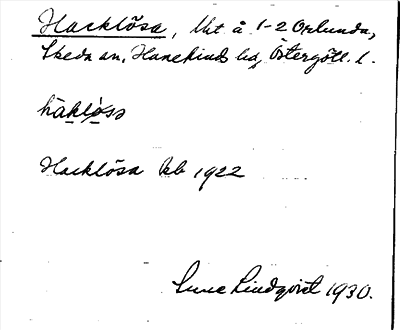 Hacklösa, lht å 1-2 Orlunda,
Skeda sn, Hanekinds hd, Östergötl. l.
håklöss
Hacklösa kb 1922
Sune Lindqvist 1930.